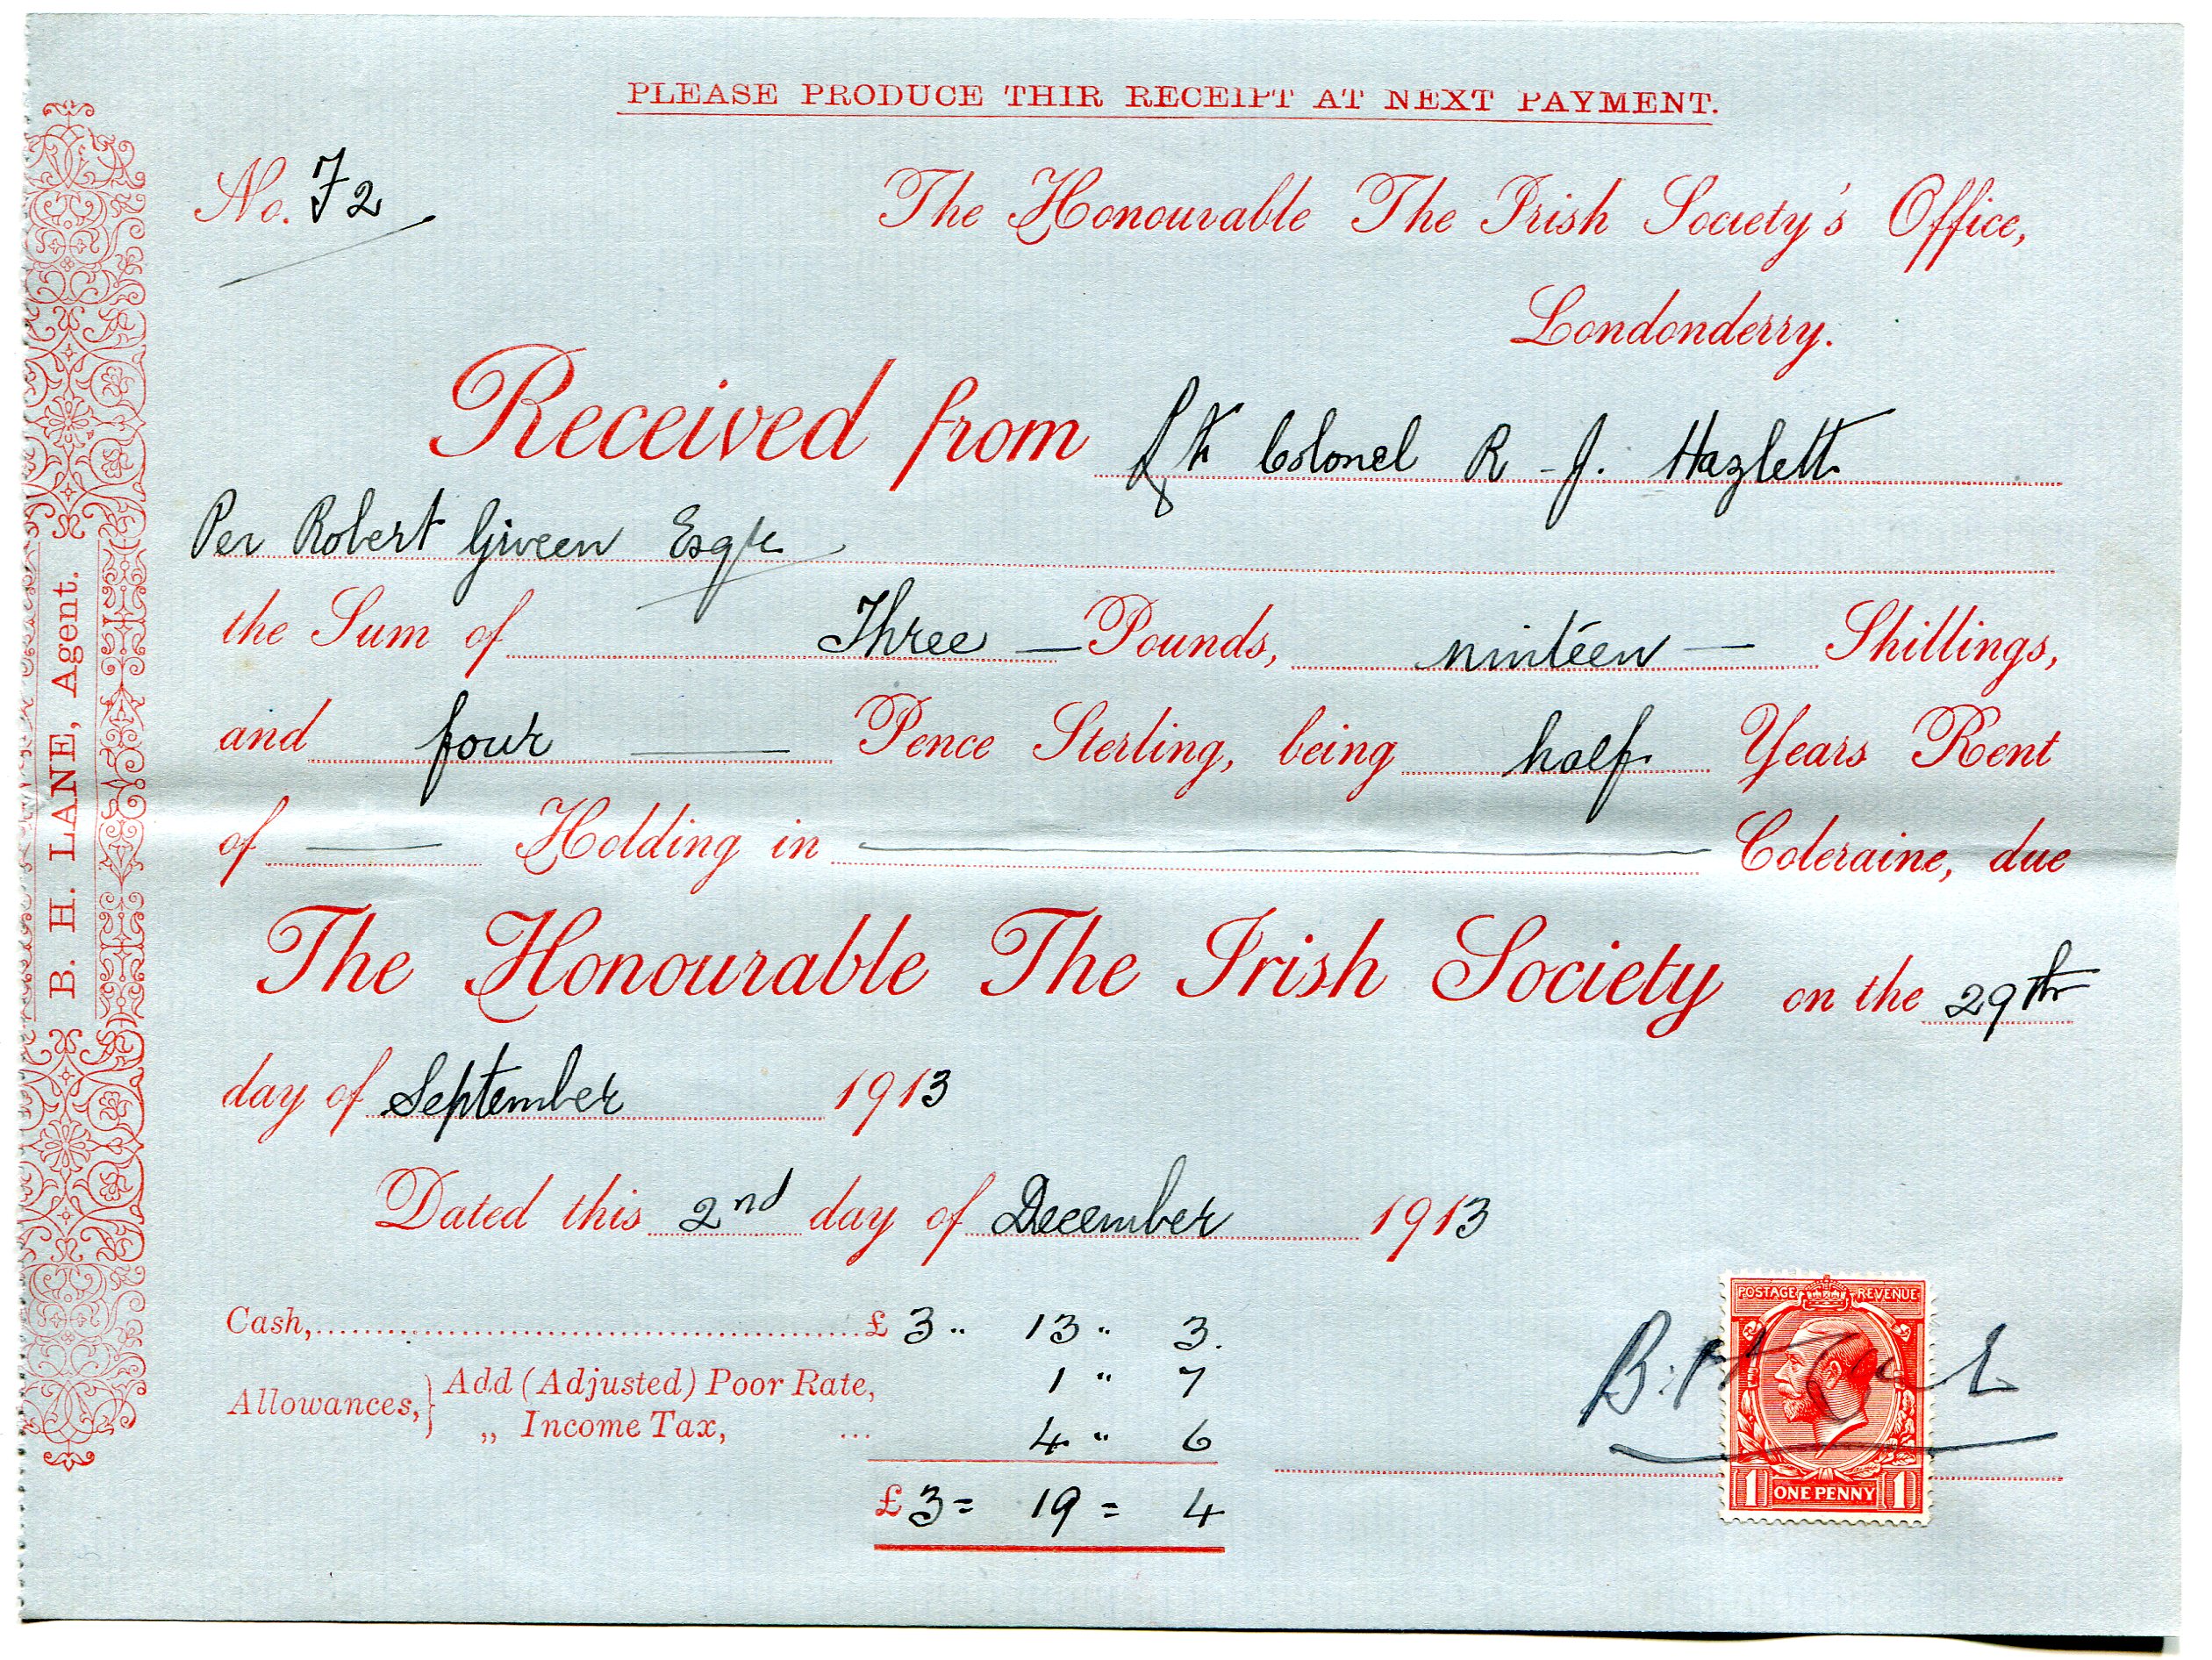 PLEASE PRODUCE THIR RECEIPT AT NEXT PAYMENT.
No. 72
The Honourable The Irish Society's Office,
Londonderry.
Received from Lt Colonel R. J. Hazlett
Per Robert Given Esqre
the Sum of Three — Pounds, ninteen — Shillings,
and four — Pence Sterling, being half Years Rent
of — Holding in — Coleraine, due
The Honourable The Irish Society on the 29th
day of September 1913
Dated this 2nd day of December 1913
Cash, £ 3 " 13 " 3.
Allowances, } Add (Adjusted) Poor Rate, 1 " 7
„ Income Tax, ... 4 " 6
£ 3 = 19 = 4
B. H. Lane
POSTAGE REVENUE
1 ONE PENNY 1
B. H. LANE, Agent.